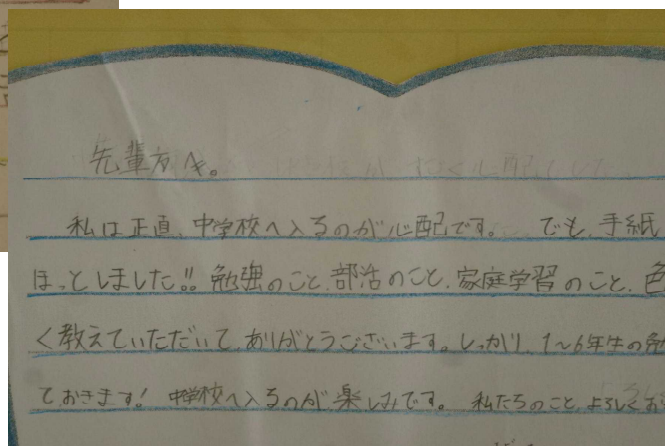 先輩方へ。
私は正直、中学校へ入るのが心配です。 でも、手紙
ほっとしました!! 勉強のこと、部活のこと、家庭学習のこと、色
く教えていただいて、ありがとうございます。しっかり、1~6年生の勉
ておきます! 中学校へ入るのが、楽しみです。 私たちのこと、よろしくお